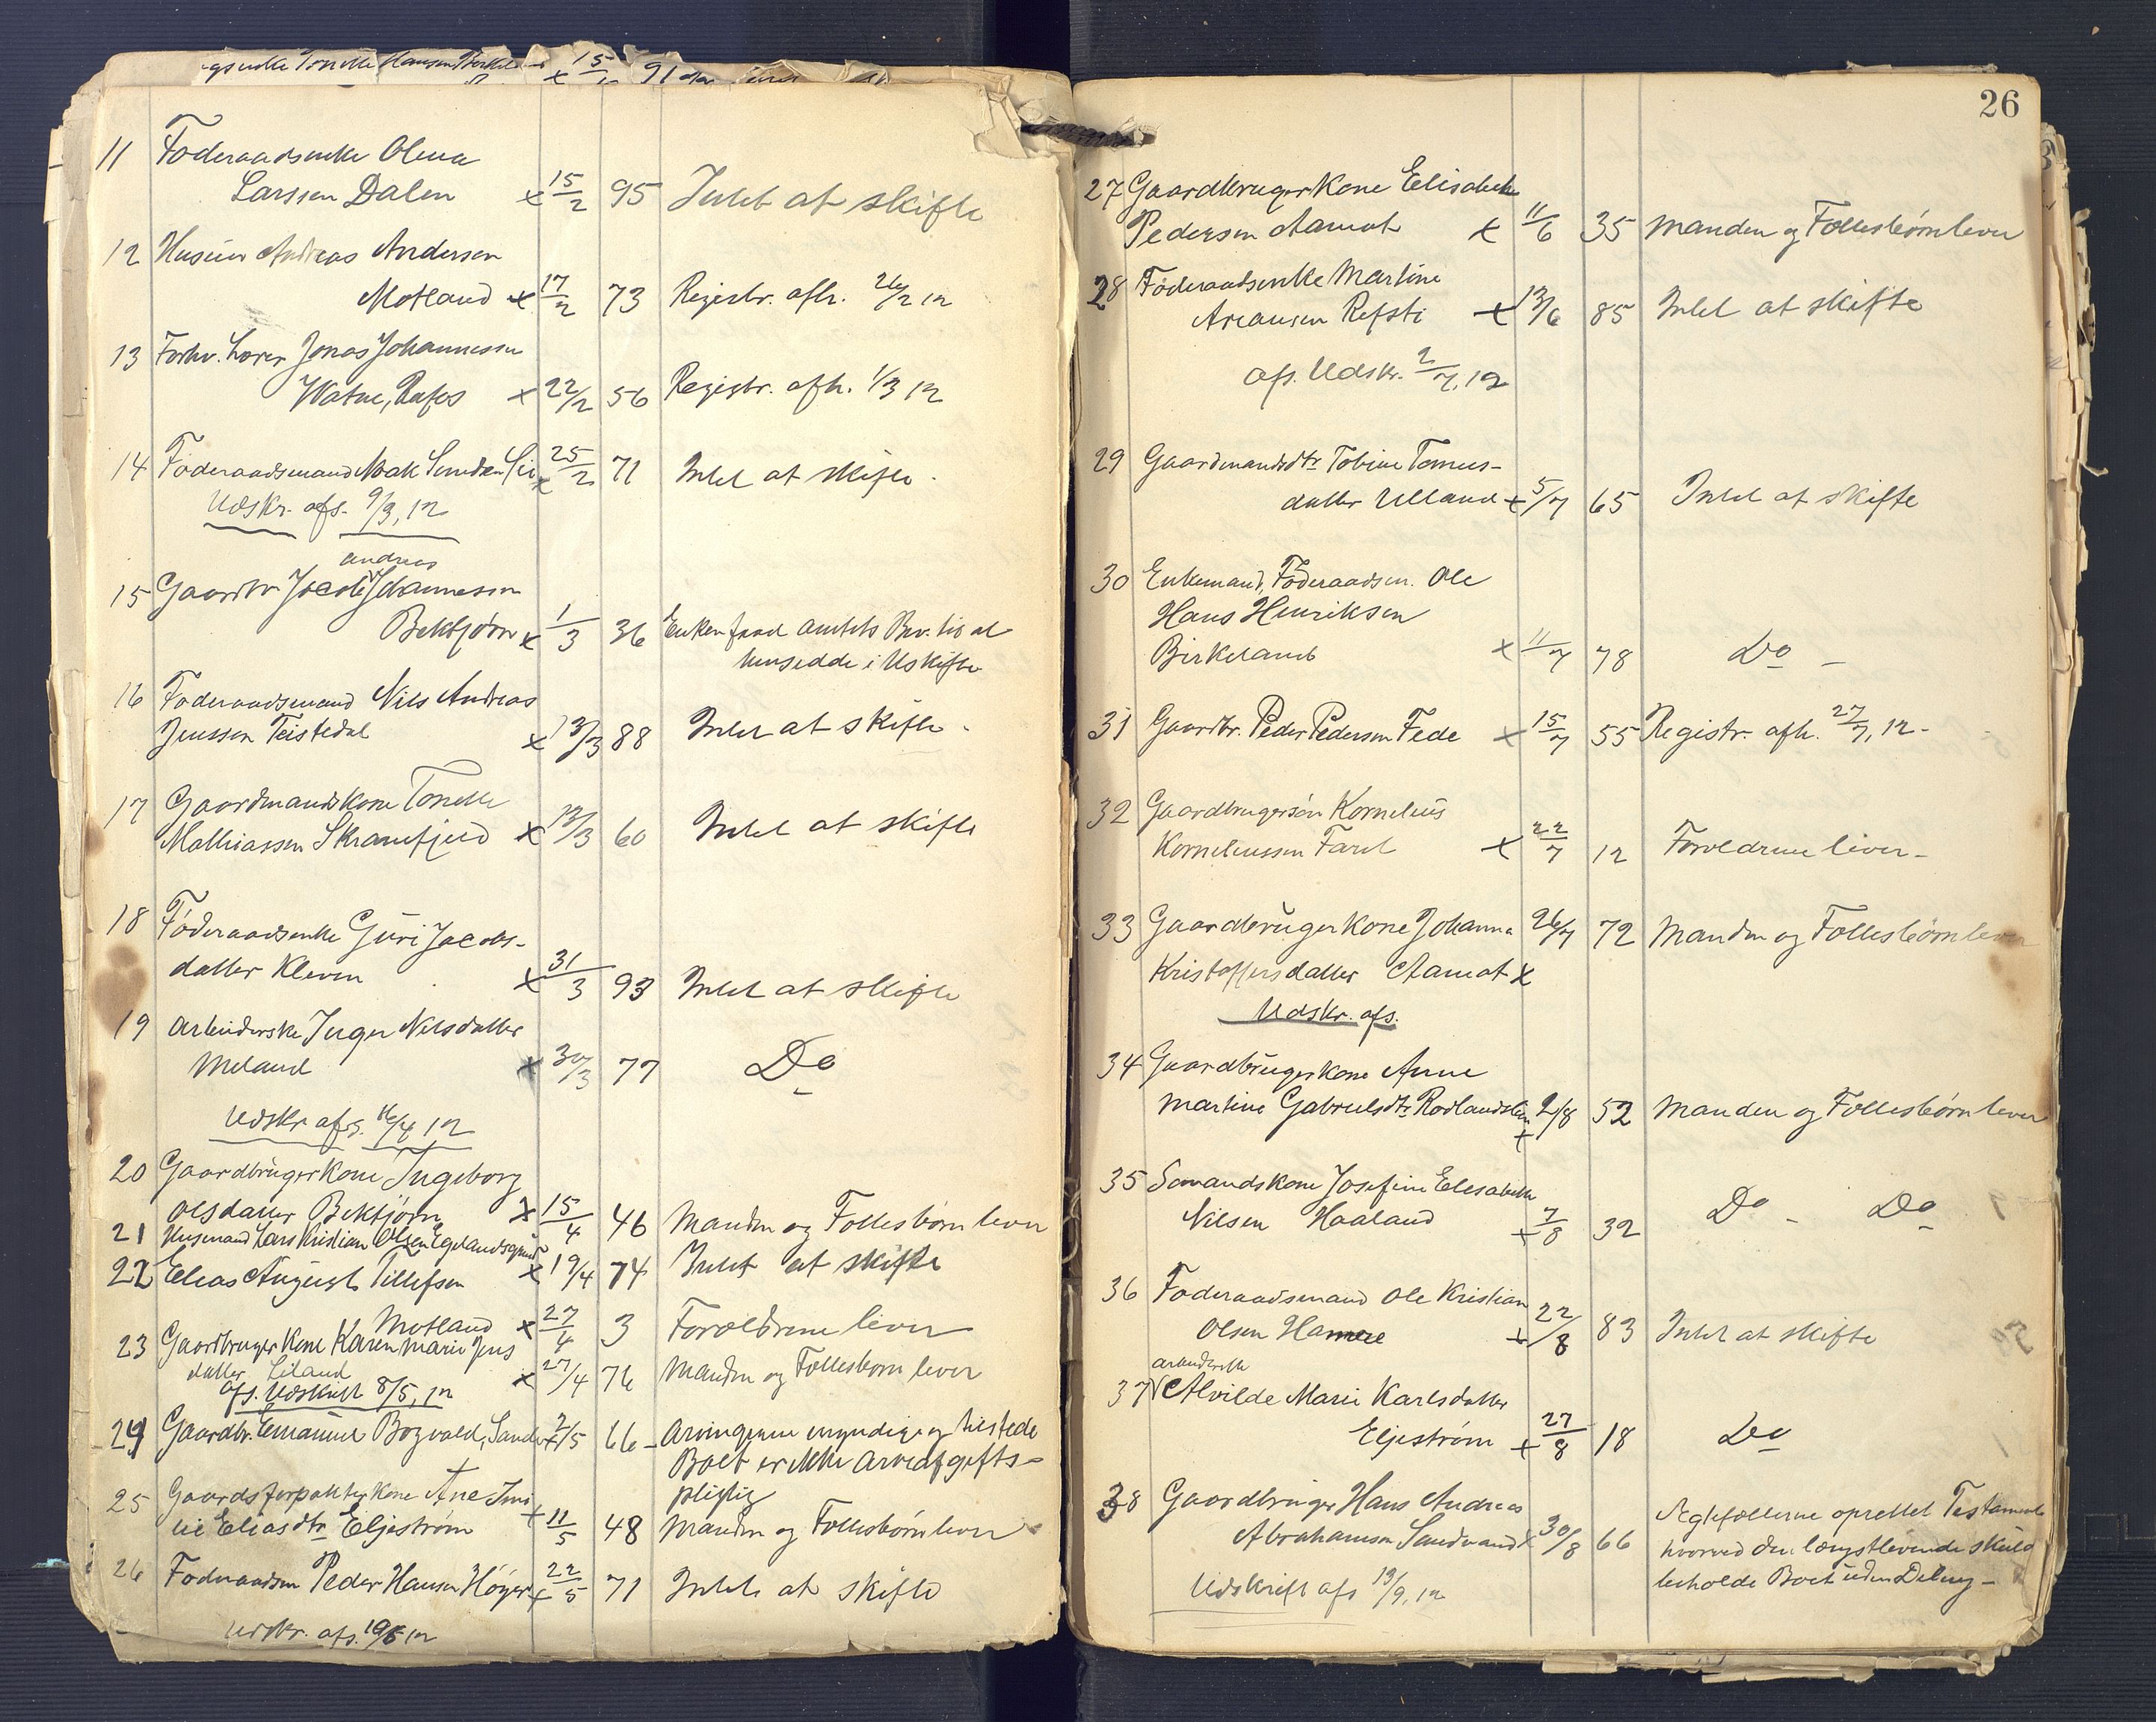 11 Föderaadsenke Olena
Larssen Dalen x 15/2 95 Intet at skifte
12 Huseier Andreas Andersen
Motland x 17/2 73 Registr. afh. 24/2 12
13 Forhv. Lærer Jonas Johannessen
Watne, Rafos x 22/2 56 Registr. afh. 1/3 12
14 Föderaadsmand Noak Svendsen Lii x 25/2 71 Intet at skifte.
Udskr. afs. 9/3, 12
andreas
15 Gaardbr Jacob Johannessen
Bektjörn x 1/3 36 Enken faad Amtets Bev. til at
hensidde i Uskifte
16 Föderaadsmand Nils Andreas
Jenssen Teistedal x 13/3 88 Intet at skifte.
17 Gaardmandskone Tonette
Mathiassen Skranefjeld x 13/3 60 Intet at skifte
18 Föderaadsenke Guri Jacobs-
datter Kleven x 31/3 93 Intet at skifte
19 Arbeiderske Inger Nilsdatter
Meland x 30/3 77 Do
Udskr afs. 16/4 12
20 Gaardbrugerkone Ingeborg
Olsdatter Bektjörn x 15/4 46 Manden og Fællesbörn lever
21 Husmand Lars Kristian Olsen Egelandsgrind x 19/4 74 Intet at skifte
22 Elias August Tillefsen
Motland x 27/4 3 Forældrene lever
23 Gaardbruger Kone Karen Marie Jens
datter Liland x 27/4 76 Manden og Fællesbörn lever
afs. Udskrift 8/5, 12
24 Gaardbr. Emanuel Bogvald, Sande x 2/5 66 - Arvingerne myndige og tilstede
Boet er ikke Arveafgifts-
pligtig
25 Gaardsforpakterkone Ane Emi
lie Eliasdtr Eljeström + 11/5 48 Manden og Fællesbörn lever
26 Föderaadsm Peder Hansen Höyer + 22/5 71 Intet at skifte
Udskr. afs. 10/6 12
26
27 Gaardbrugerkone Elisabeth
Pedersen Aamot x 11/6 35 Manden og Fællesbörn lever
28 Föderaadsenke Martine
Areausen Refsti x 13/6 85 Intet at skifte
afs. Udskr. 2/7, 12
29 Gaardmandsdtr Tobine Tomes-
datter Ulland + 5/7 65 Intet at skifte
30 Enkemand, Föderaadsm. Ole
Hans Henriksen
Birkeland x 11/7 78 Do -
31 Gaardbr. Peder Pedersen Fede x 15/7 55 Registr. afh. 27/7, 12.
32 Gaardbrugersön Kornelius
Korneliussen Farel x 22/7 12 Forældrene lever -
33 Gaardbrugerkone Johanna 26/7 72 Manden og Fællesbörn lever
Kristoffersdatter Aamot x
Udskr. afs.
34 Gaardbrugerkone Anne
Martine Gabrielsdtr Rödlandslien + 2/8 52 Manden og Fællesbörn lever
35 Sömandskone Josefine Elesabeth
Nilsen Haaland + 7/8 32 Do - Do
36 Föderaadsmand Ole Kristian
Olsen Hamre + 22/8 83 Intet at skifte
arbeiderske
37 Alvilde Marie Karlsdatter
Eljeström + 27/8 18 Do
38 Gaardbruger Hans Andreas
Abrahamsen Sandvand x 30/8 66 Ægtefællerne oprettet Testamente
hvorved den længstlevende skuld
beholde Boet uden Deling -
Udskrift afs 13/9, 12